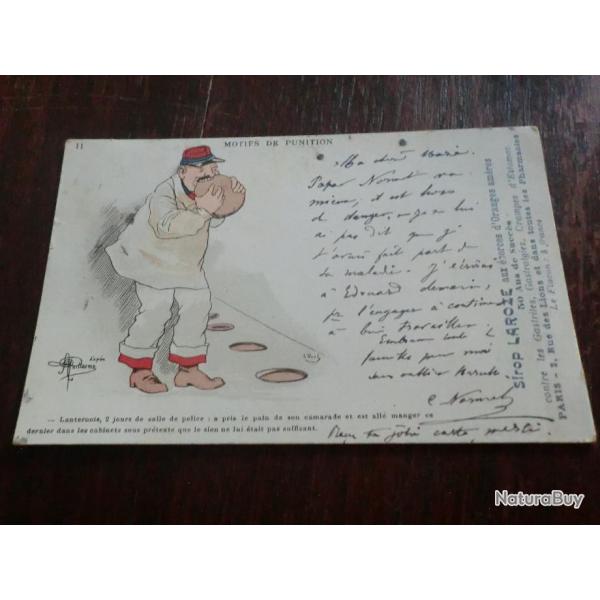 11
MOTIFS DE PUNITION
Ma chère Marie.
Papa Normat va
mieux, il est hors
de danger, je ne lui
ai pas dit que je
t'avais fait part de
sa maladie. J'écrirai
à Edouard demain,
pr l'engager à continuer
à bien travailler.
Embrasse toute la
famille pour moi
sans oublier
C.
Reçu ta jolie carte, merci.
Sirop LAROZE aux écorces d'Oranges amères
50 Ans de Succès
contre les Gastrites, Gastralgies, Crampes d'Estomac
PARIS - 2, Rue des Lions et dans toutes les Pharmacies
Le Flacon: 3 francs
d'après
Guillaume
— Lanternois, 2 jours de salle de police : a pris le pain de son camarade et est allé manger ce
dernier dans les cabinets sous prétexte que le sien ne lui était pas suffisant.
NaturaBuy